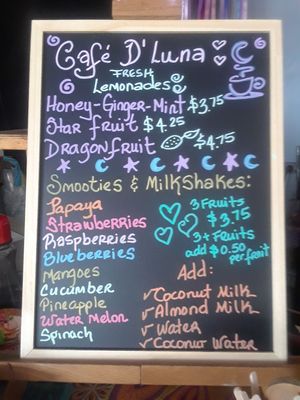 Café D'Luna
FRESH
Lemonades
Honey-Ginger-Mint $3.75
Star fruit $4.25
Dragonfruit $4.75
Smooties & MilkShakes:
Papaya
Strawberries
Raspberries
Blueberries
Mangoes
Cucumber
Pineapple
Water Melon
Spinach
3 Fruits
$3.75
3+Fruits
add $0.50
per fruit
Add:
✓Coconut Milk
✓Almond Milk
✓Water
✓Coconut Water